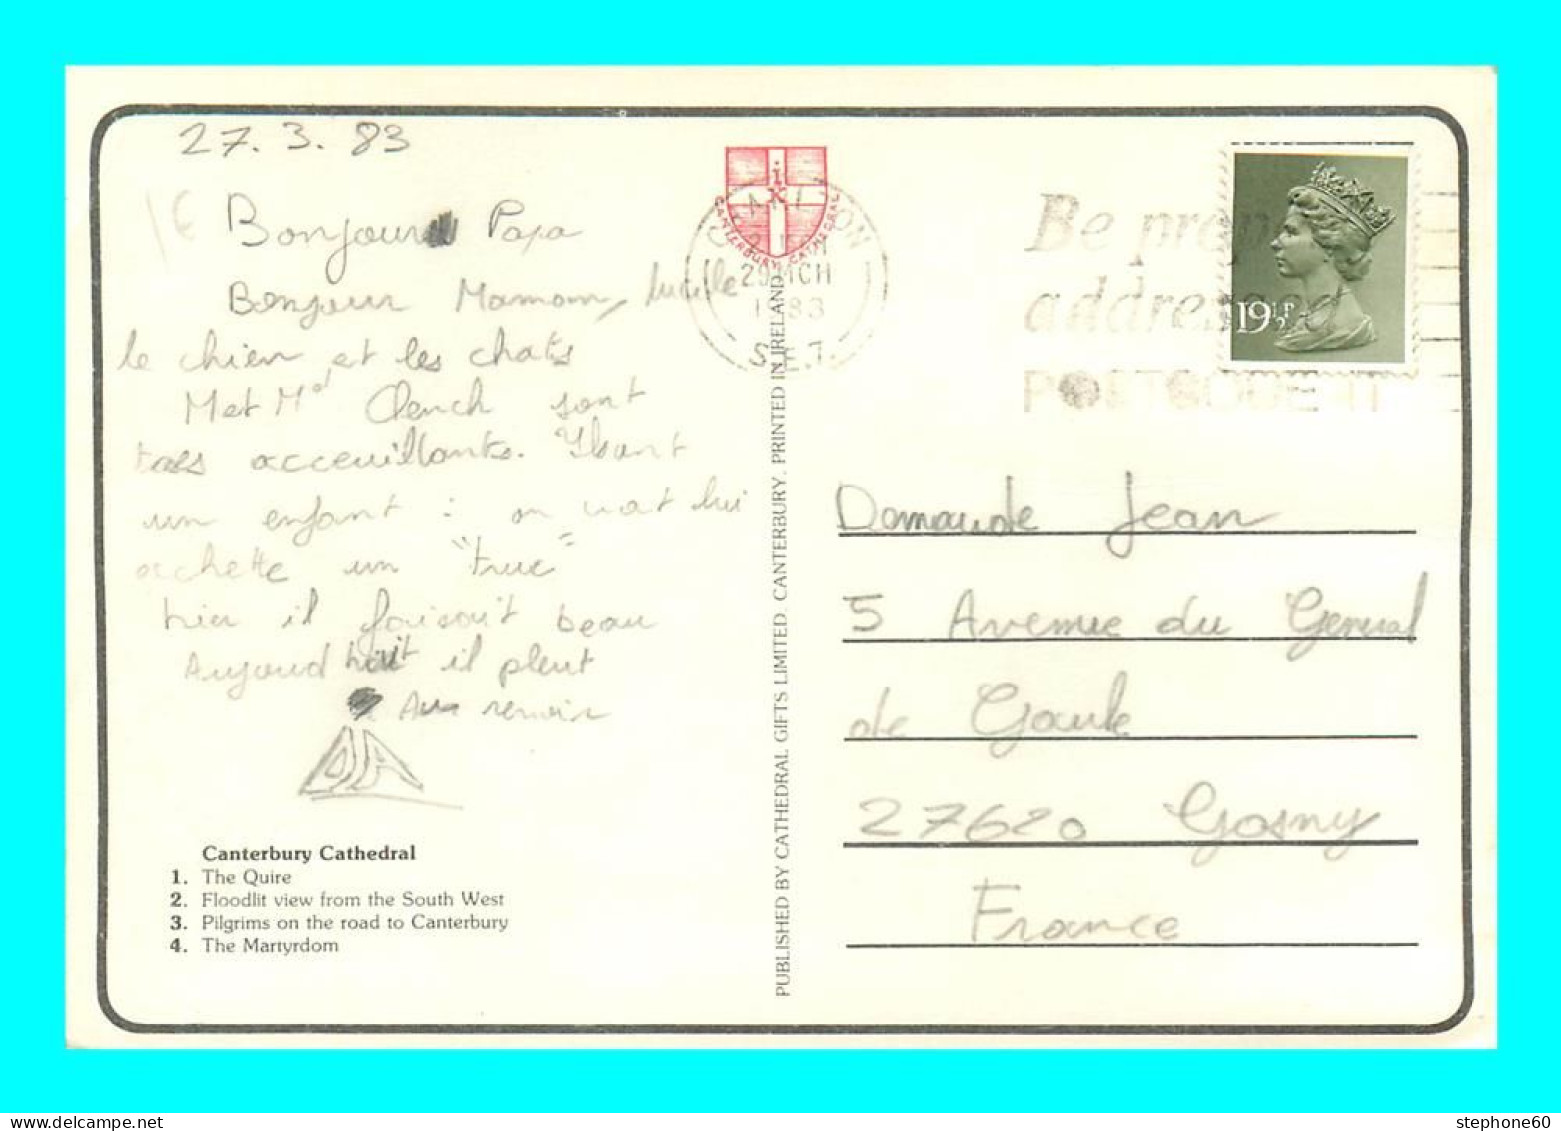 27.3.83
1€
Bonjour Papa
Bonjour Maman, lucile
le chien, et les chats
M et Md Clench sont
tres acceuillants. Ils ont
un enfant : on lui
achette un "truc"
hier il faisait beau
Aujourd huit il pleut
Au revoir
Canterbury Cathedral
1. The Quire
2. Floodlit view from the South West
3. Pilgrims on the road to Canterbury
4. The Martyrdom
iX
CANTERBURY CATHEDRAL
29 MCH
1983
PUBLISHED BY CATHEDRAL GIFTS LIMITED. CANTERBURY. PRINTED IN IRELAND
Be prop
addressed
POSTCODE IT
19½P
Damaude Jean
5 Avenue du General
de Gaule
27620 Gasny
France
stephone60